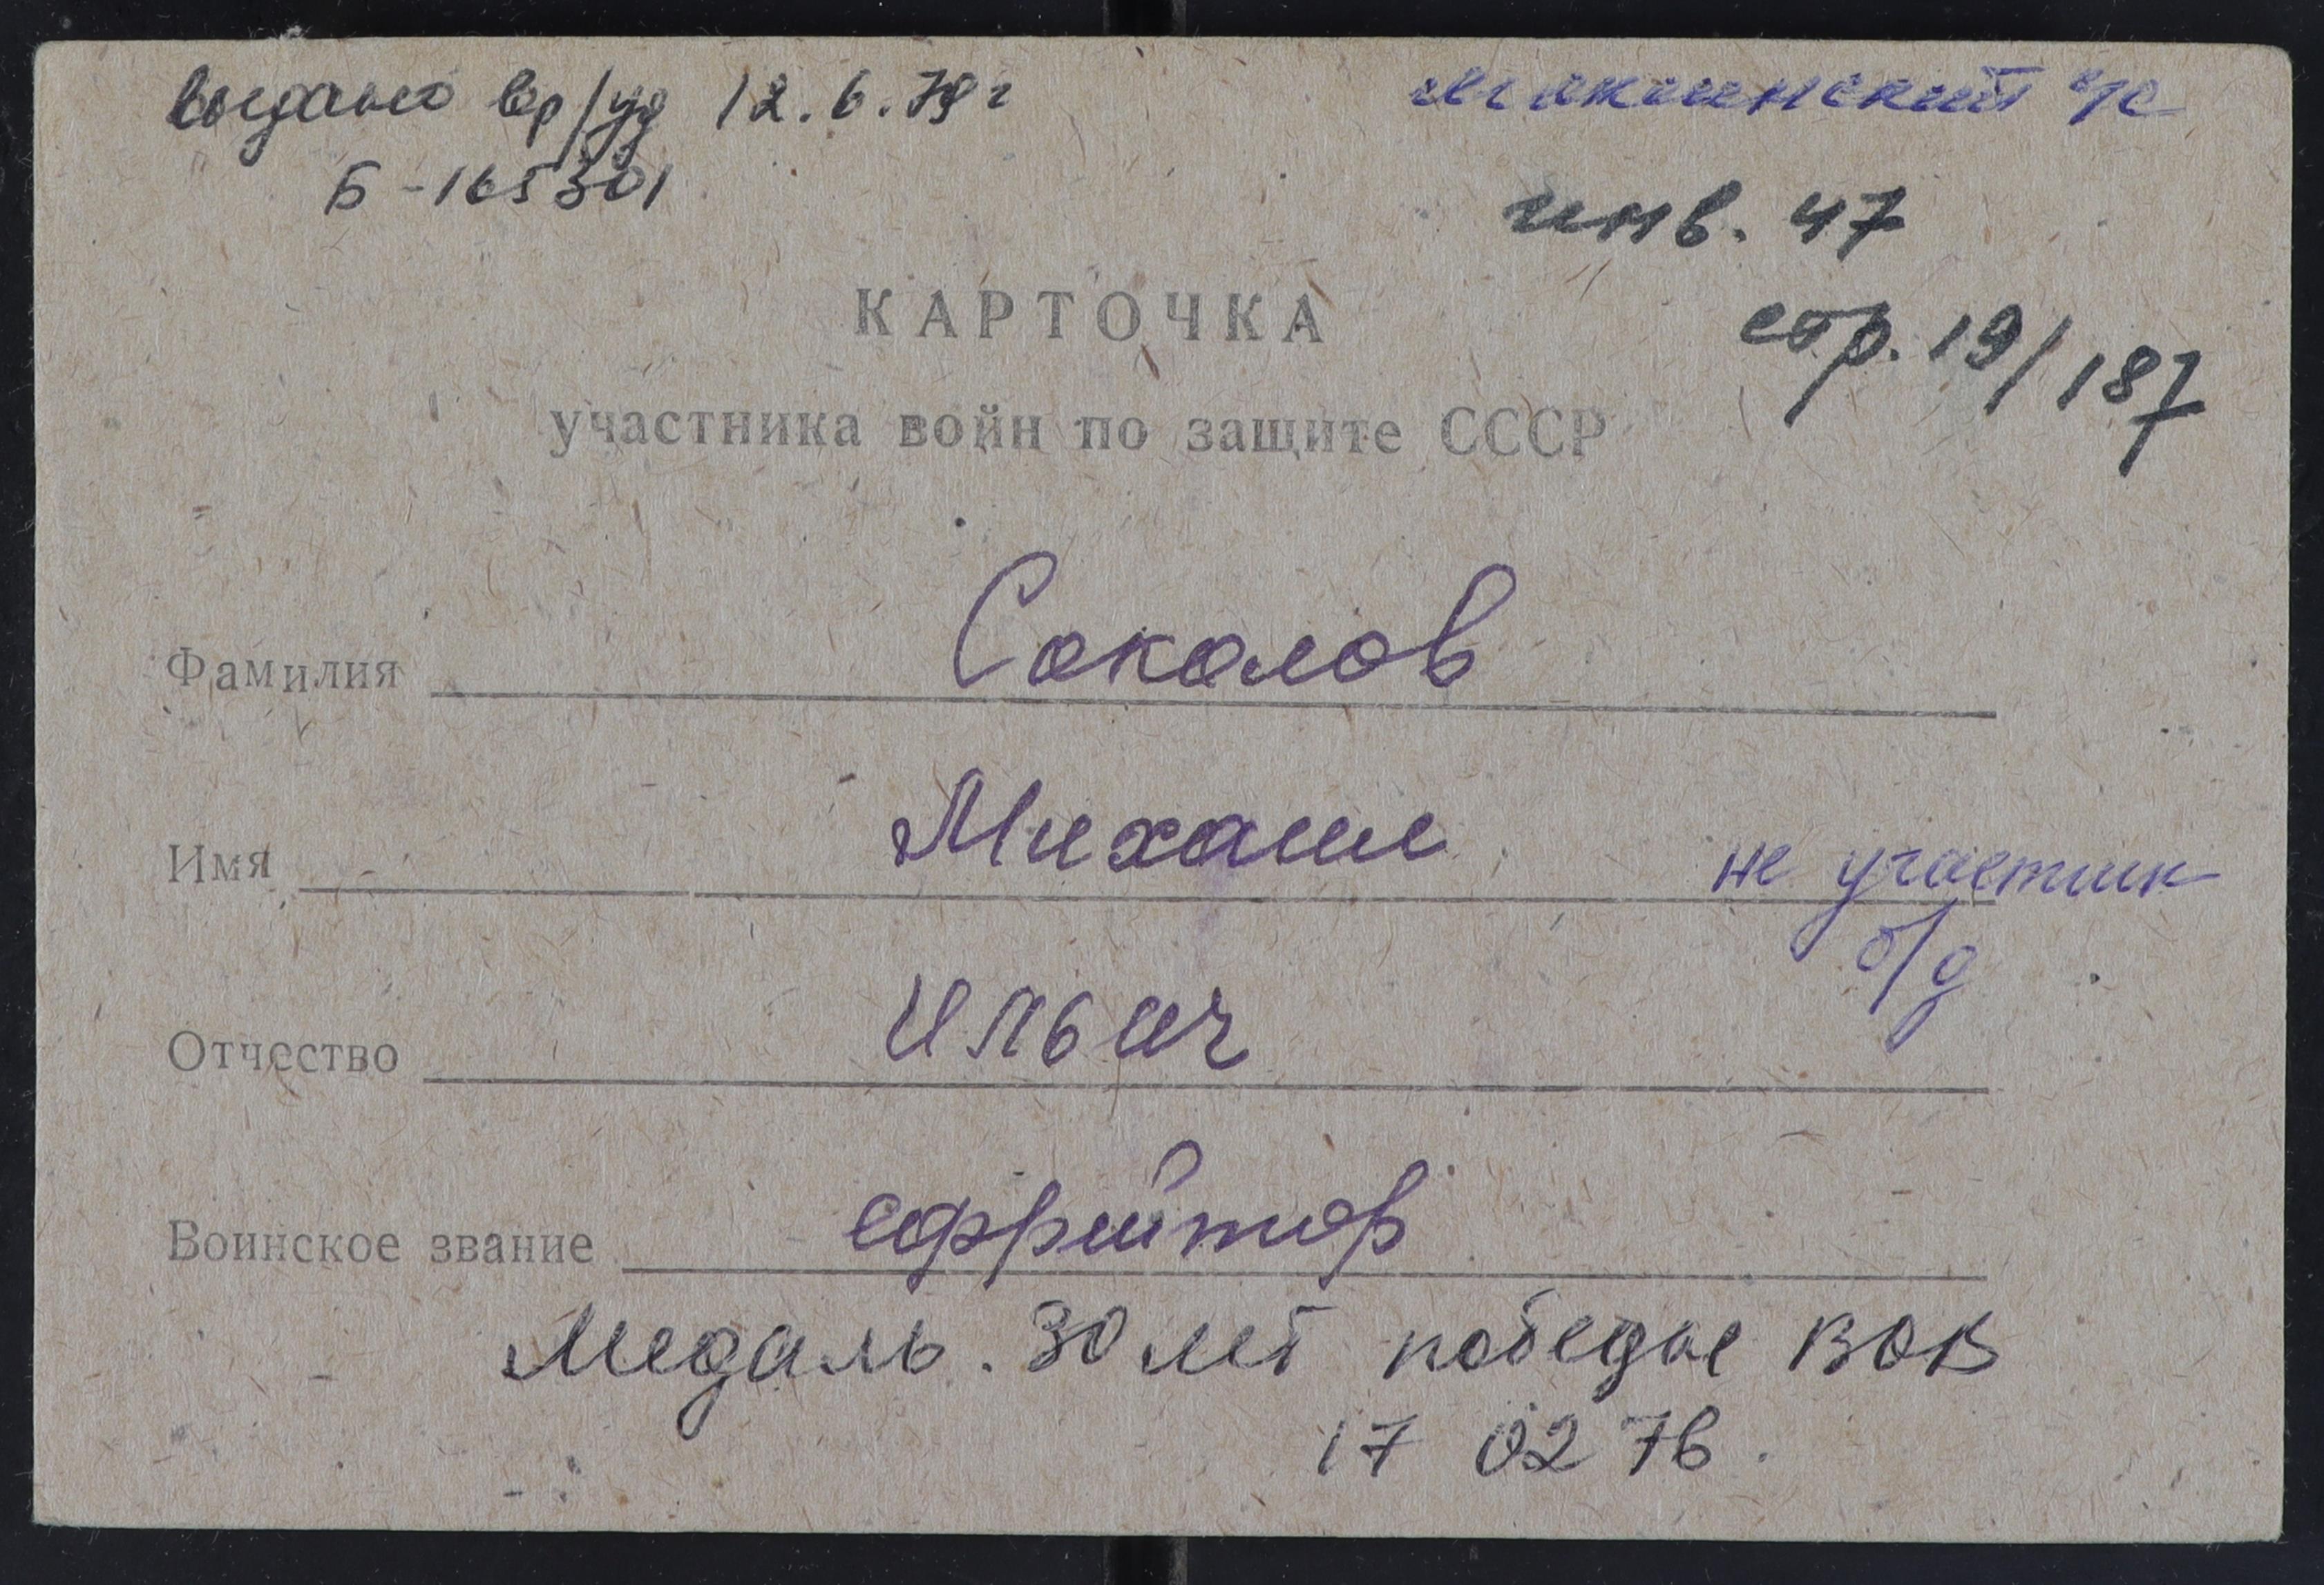 выдано вр/уд 12.6.79 г
Б-165301
Макинский с/с
инв. 47
стр. 19/187
КАРТОЧКА
участника войн по защите СССР
Фамилия Соколов
Имя Михаил
не участник
б/д
Отчество Ильич
Воинское звание ефрейтор
Медаль. 30 лет победы ВОВ
17 02 76.